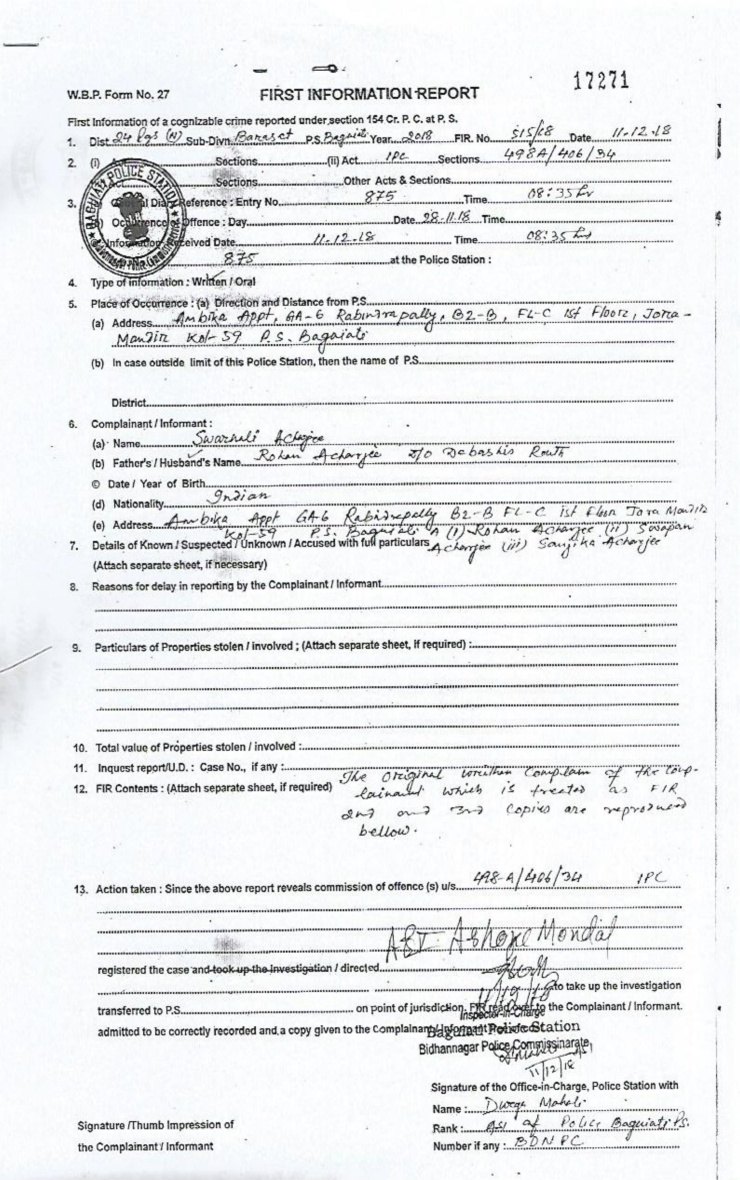 17271
W.B.P. Form No. 27 FIRST INFORMATION REPORT
First Information of a cognizable crime reported under section 154 Cr. P. C. at P. S.
1. Dist 24 Pgs (N) Sub-Divn Baraset P.S. Baguiati Year 2018 FIR. No 515/18 Date 11-12-18
2. (i) Sections (ii) Act IPC Sections 498A/406/34
Sections Other Acts & Sections
3. Diary Reference : Entry No 875 Time 08:35 hr
Occurrence of Offence : Day Date 28.11.18 Time
Information Received Date 11.12.18 Time 08:35 hrs
875 at the Police Station :
BAGUIATI POLICE STATION
4. Type of information : Written / Oral
5. Place of Occurrence : (a) Direction and Distance from P.S
(a) Address Ambika Appt, GA-6 Rabindrapally, B2-B, FL-C 1st Floor, Jora-
Mandir Kol-59 P.S. Baguiati
(b) In case outside limit of this Police Station, then the name of P.S
District
6. Complainant / Informant :
(a) Name Swarnali Acharjee
(b) Father's / Husband's Name Rohan Acharjee D/O Debashis Routh
© Date / Year of Birth
(d) Nationality Indian
(e) Address Ambika Appt GA-6 Rabindrapally B2-B FL-C 1st Floor Jora Mandir
Kol-59 P.S. Baguiati (i) Rohan Acharjee (ii) Swapan
7. Details of Known / Suspected / Unknown / Accused with full particulars Acharjee (iii) Acharjee
(Attach separate sheet, if necessary)
8. Reasons for delay in reporting by the Complainant / Informant
9. Particulars of Properties stolen / involved ; (Attach separate sheet, if required) :
10. Total value of Properties stolen / involved :
11. Inquest report/U.D. : Case No., if any :
12. FIR Contents : (Attach separate sheet, if required) The original written Complain of the Comp-
lainant which is treated as FIR
2nd and 3rd Copies are reproduced
bellow.
13. Action taken : Since the above report reveals commission of offence (s) u/s 498-A/406/34 IPC
ASI Ashoke Mondal
registered the case and took up the Investigation / directed
to take up the investigation
transferred to P.S. on point of jurisdiction. FIR read over to the Complainant / Informant.
Inspector-in-Charge
admitted to be correctly recorded and a copy given to the Complainant / Informant
Baguiati Police Station
Bidhannagar Police Commissinarate
11/12/18
Signature of the Office-in-Charge, Police Station with
Name : Durga Mahali
Signature /Thumb Impression of Rank : ASI of Police Baguiati P.S.
the Complainant / Informant Number if any : BDNPC